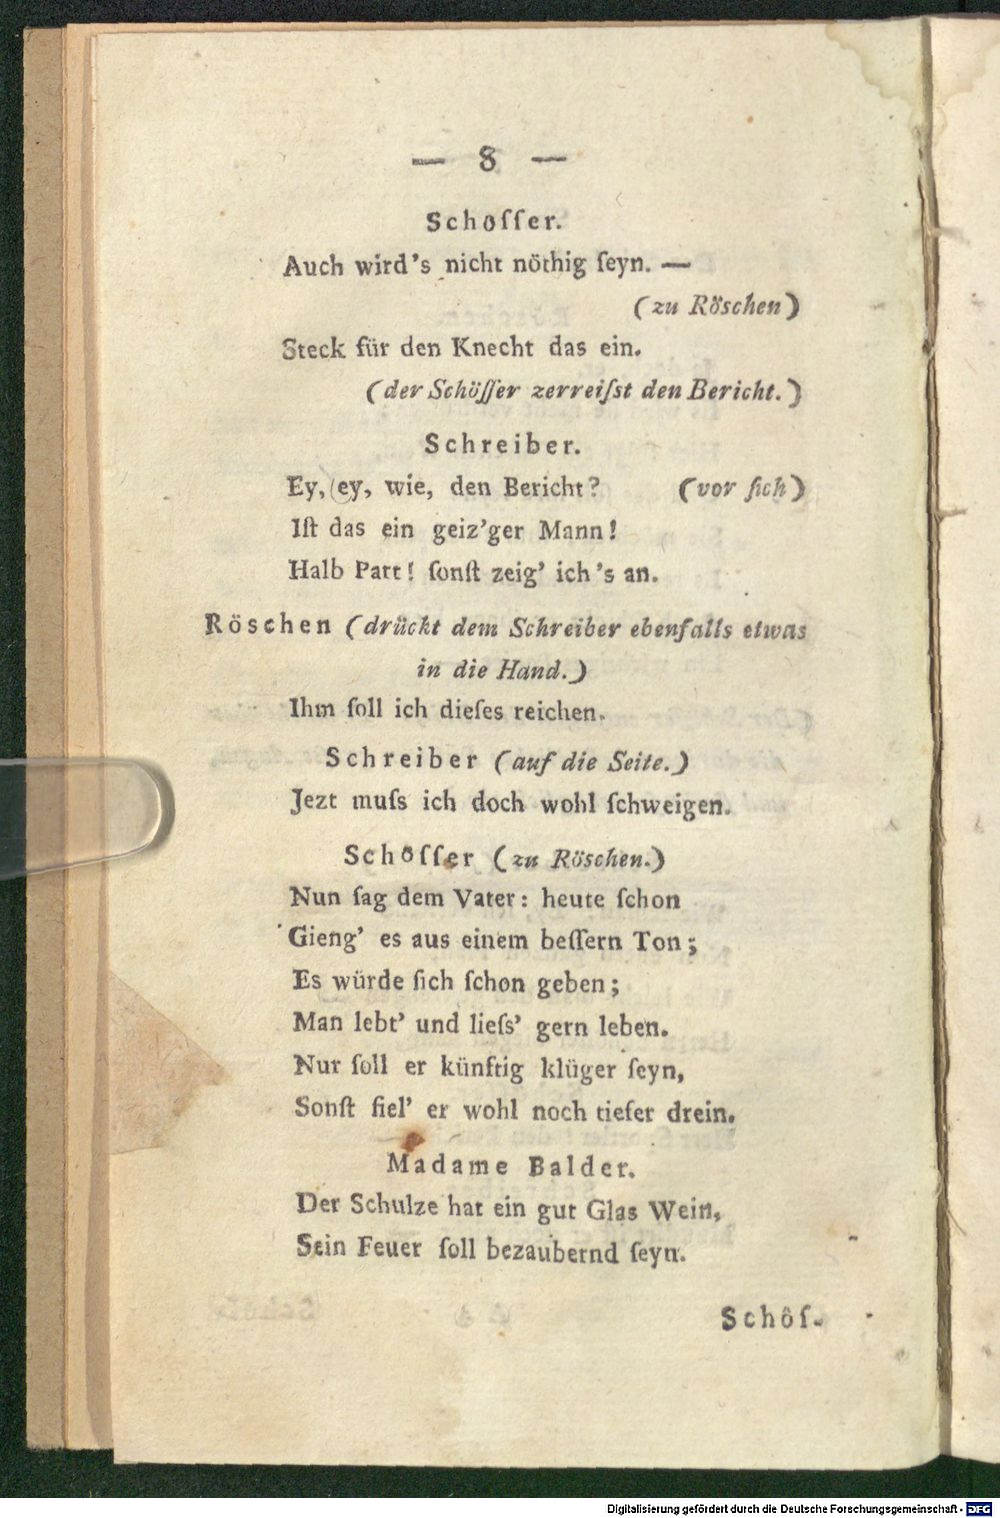 — 8 —
Schoſſer.
Auch wird's nicht nöthig ſeyn. —
(zu Röschen)
Steck für den Knecht das ein.
(der Schöſſer zerreiſst den Bericht.)
Schreiber.
Ey, (ey, wie, den Bericht? (vor ſich)
Iſt das ein geiz'ger Mann!
Halb Part! ſonſt zeig' ich's an.
Röschen (drückt dem Schreiber ebenfalls etwas
in die Hand.)
Ihm ſoll ich dieſes reichen.
Schreiber (auf die Seite.)
Jezt muſs ich doch wohl ſchweigen.
Schöſſer (zu Röschen.)
Nun ſag dem Vater: heute ſchon
Gieng' es aus einem beſſern Ton;
Es würde ſich ſchon geben;
Man lebt' und lieſs' gern leben.
Nur ſoll er künftig klüger ſeyn,
Sonſt fiel' er wohl noch tiefer drein.
Madame Balder.
Der Schulze hat ein gut Glas Wein,
Sein Feuer ſoll bezaubernd ſeyn.
Schöſ-
Digitalisierung gefördert durch die Deutsche Forschungsgemeinschaft - DFG